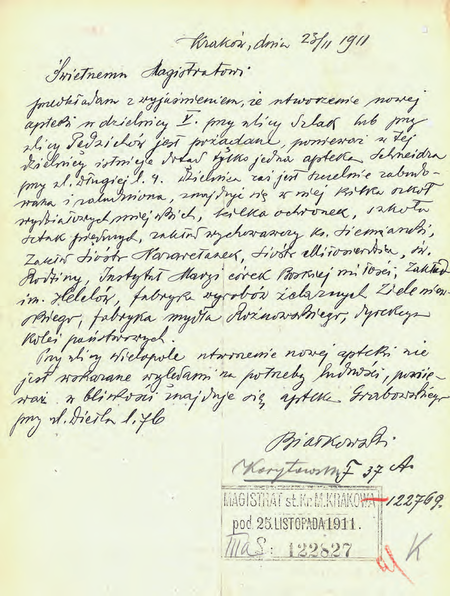 Kraków, dnia 25/II 1911
Świetnemu Magistratowi
przedkładam z wyjaśnieniem, że utworzenie nowej
apteki w dzielnicy V. przy ulicy Szlak lub przy
ulicy Pędzichów jest pożądane, ponieważ w tej
dzielnicy istnieje dotąd tylko jedna apteka Schneidra
przy ul. Długiej l. 4. Dzielnica zaś jest szczelnie zabudo-
wana i zaludniona, znajduje się w niej kilka szkół
wydziałowych miejskich, kilka ochronek, szkoła
sztuk pięknych, zakład wychowawczy ks. Siemaszki,
Zakład Sióstr Nazaretanek, Sióstr Miłosierdzia, św.
Rodziny, Instytut Maryi córek Boskiej miłości, Zakład
im. Helclów, fabryka wyrobów żelaznych Zieleniew-
skiego, fabryka mydła Rożnowskiego, dyrekcya
kolei państwowych.
Przy ulicy Wielopole utworzenie nowej apteki nie
jest wskazane względami na potrzeby ludności, ponie-
waż w bliskości znajduje się apteka Grabowskiego
przy ul. Dietla l. 76
Białkowski
I 37 A
122769.
MAGISTRAT st. Kr. M. KRAKOWA
pod. 25. LISTOPADA 1911.
IIIa S: 122827
K